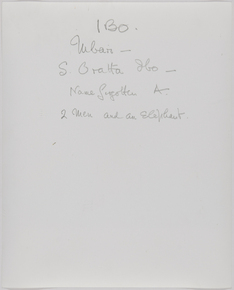 IBO.
Mbari —
S. Oratta Ibo —
Name forgotten A
2 Men and an elephant.